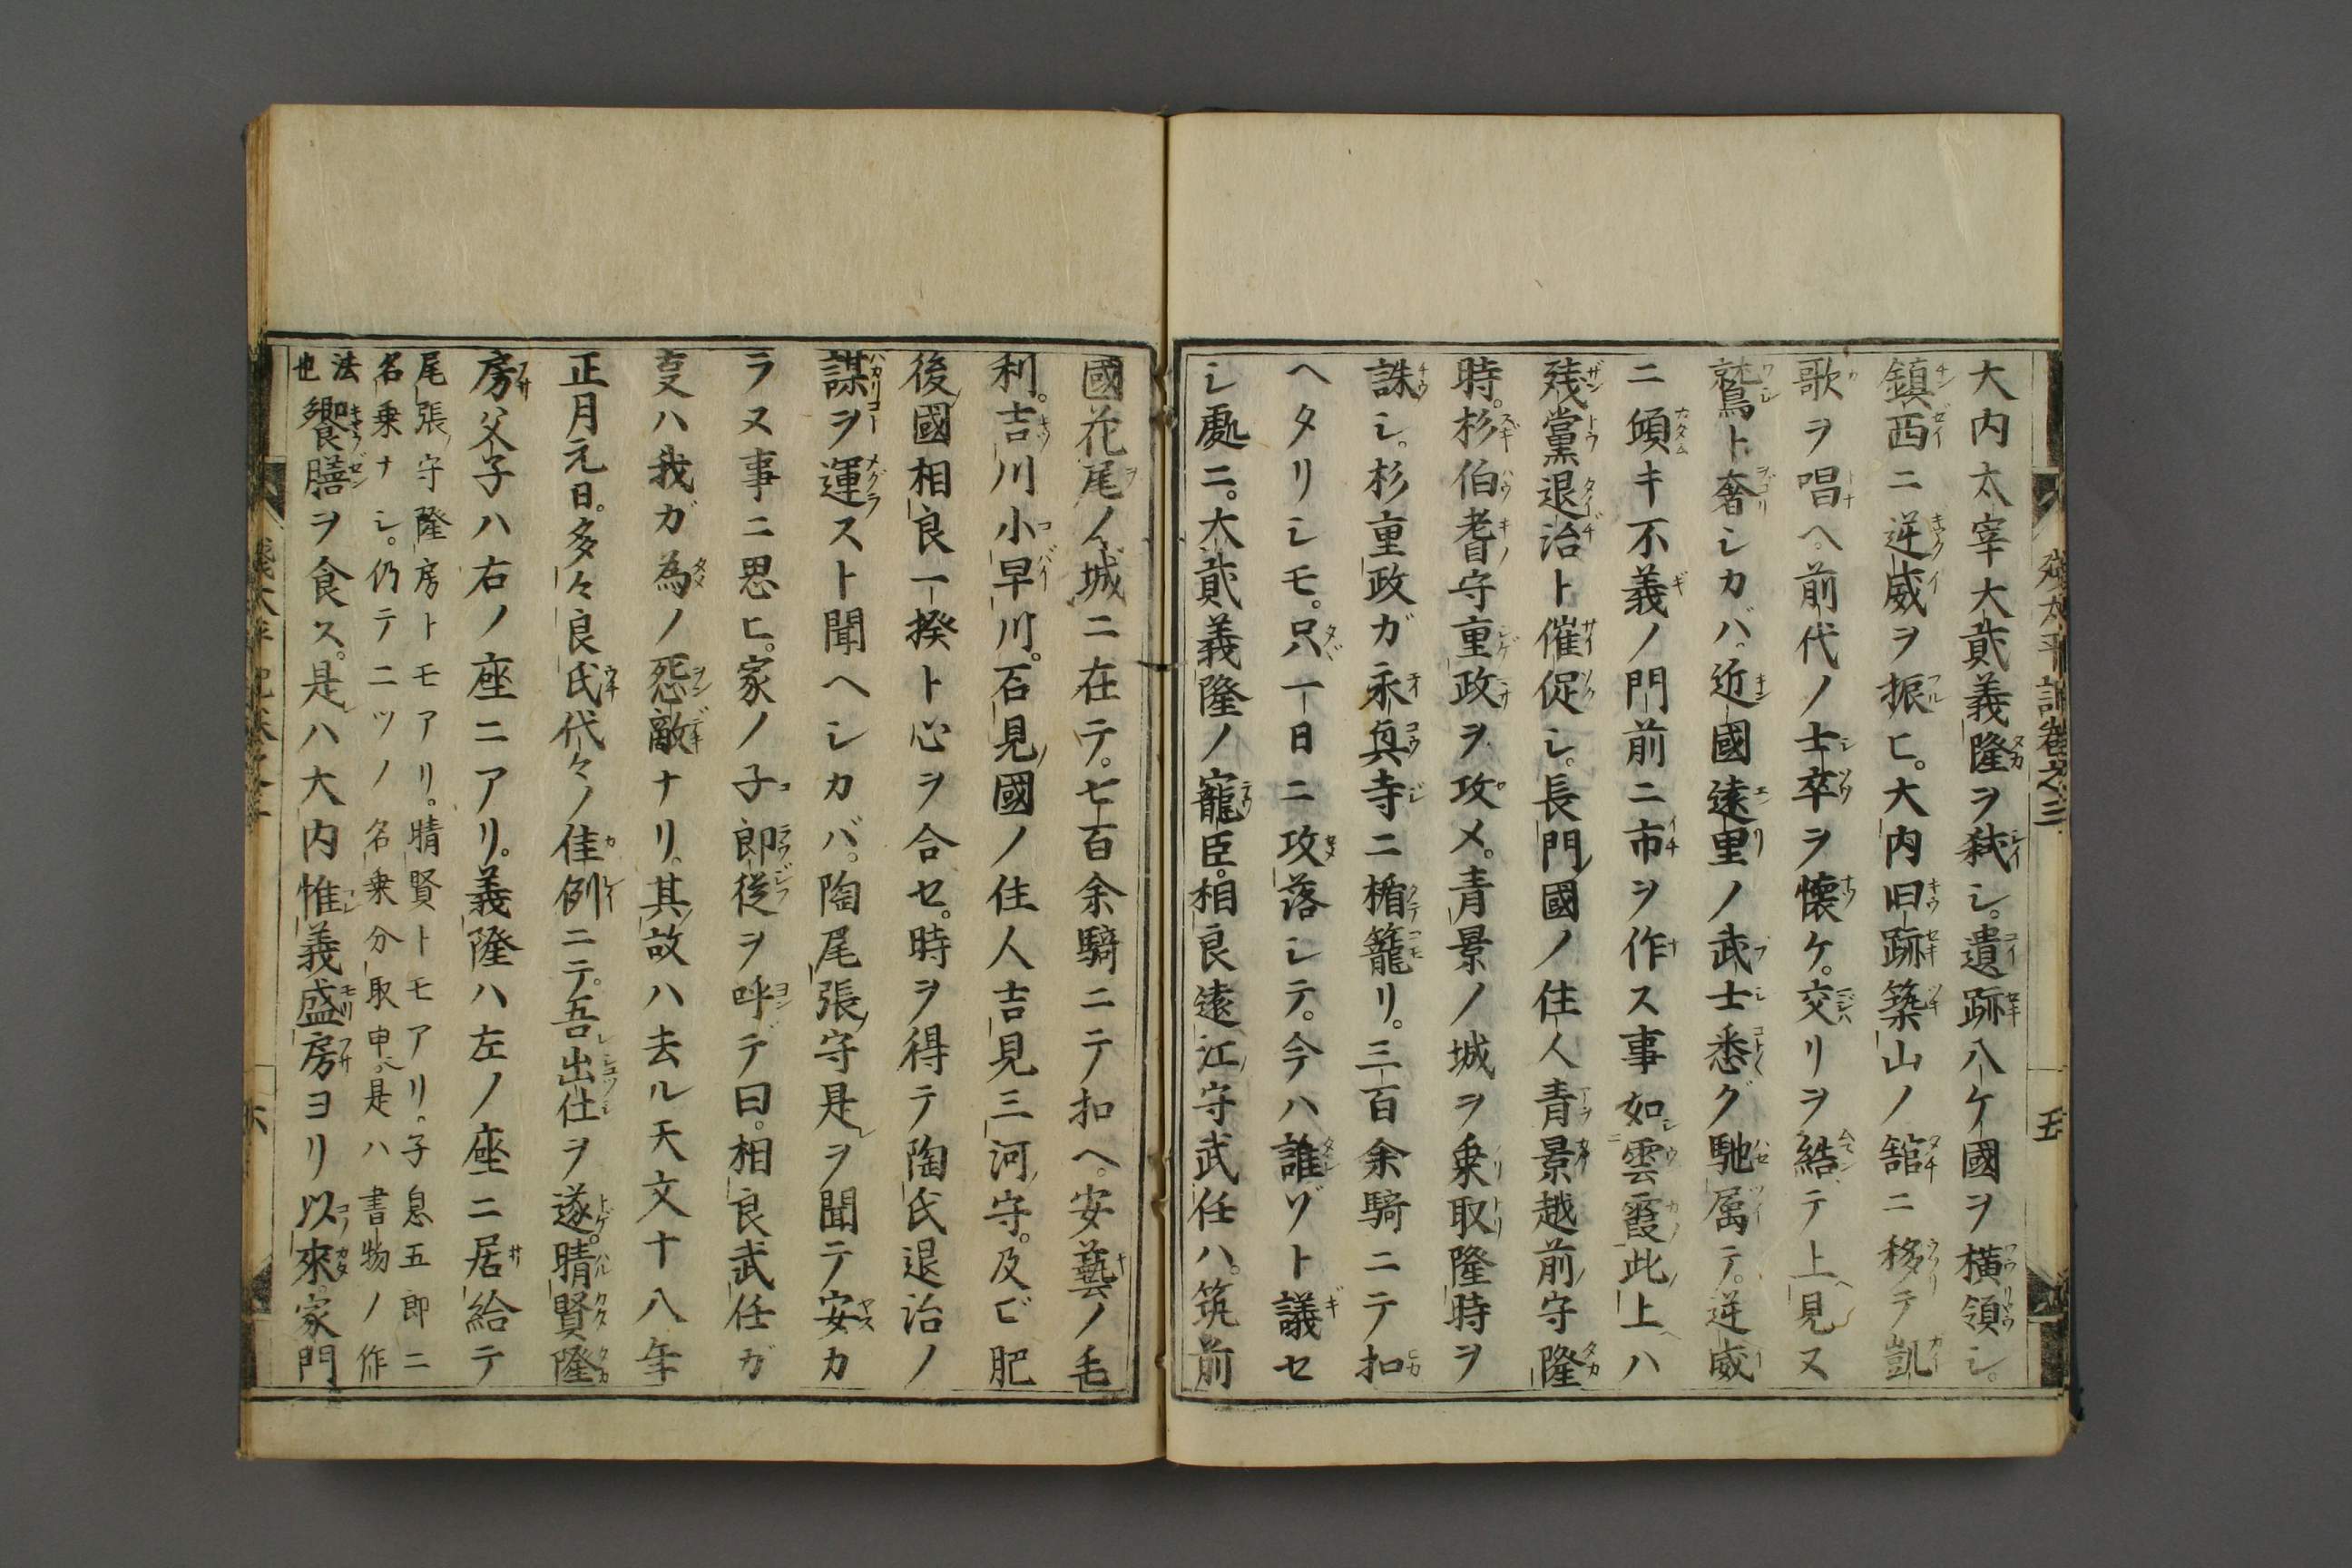 大内太宰大貳義隆ヲ弑シ。遺跡八ケ國ヲ横領シ。
鎮西ニ逆威ヲ振ヒ。大内旧跡築山ノ舘ニ移テ凱
歌ヲ唱ヘ。前代ノ士卒ヲ懐ケ。交リヲ結テ上見ヌ
鷲ト奢シカバ。近國遠里ノ武士悉グ馳属テ。逆威
ニ傾キ不義ノ門前ニ市ヲ作ス事如雲霞此上ハ
残黨退治ト催促シ。長門國ノ住人青景越前守隆
時。杉伯耆守重政ヲ攻メ。青景ノ城ヲ乗取隆時ヲ
誅シ。杉重政ガ永真寺ニ楯籠リ。三百余騎ニテ扣
ヘタリシモ。只一日ニ攻落シテ。今ハ誰ゾト議セ
シ處ニ。大貳義隆ノ寵臣。相良遠江守武任ハ。筑前
國花尾ノ城ニ在テ。七百余騎ニテ扣ヘ。安藝ノ毛
利。吉川小早川。石見國ノ住人吉見三河守。及ビ肥
後國相良一揆ト心ヲ合セ。時ヲ得テ陶氏退治ノ
謀ヲ運スト聞ヘシカバ。陶尾張守是ヲ聞テ安カ
ラヌ事ニ思ヒ。家ノ子郎従ヲ呼デ曰。相良武任ガ
㕝ハ我ガ為ノ怨敵ナリ。其故ハ去ル天文十八年
正月元日。多々良氏代々ノ佳例ニテ。吾出仕ヲ遂。晴賢隆
房父子ハ右ノ座ニアリ。義隆ハ左ノ座ニ居給テ
尾張守隆房トモアリ。晴賢トモアリ。子息五郎ニ
名乗ナシ。仍テ二ツノ名乗分取申。是ハ書物ノ作
法也
饗膳ヲ食ス。是ハ大内惟義盛房ヨリ以來家門
残太平記卷之三
五